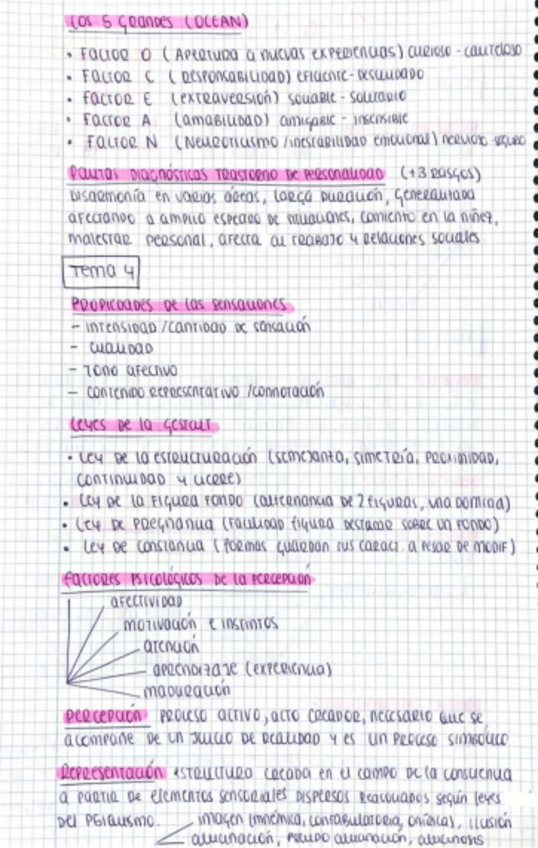 Los 5 Grandes (OCEAN)
• Factor O (Apertura a nuevas experiencias) curioso - cauteloso
• Factor C (Responsabilidad) eficiente - descuidado
• Factor E (extraversión) sociable - solitario
• Factor A (amabilidad) amigable - insensible
• Factor N (Neuroticismo / inestabilidad emocional) nervioso - seguro
Pautas diagnósticas trastorno de personalidad (+3 rasgos)
Disarmonía en varias áreas, larga duración, generalizada
afectando a amplio espectro de situaciones, comienzo en la niñez,
malestar personal, afecta al trabajo y relaciones sociales
Tema 4
Propiedades de las sensaciones
- intensidad / cantidad de sensación
- cualidad
- tono afectivo
- contenido representativo / connotación
Leyes de la Gestalt
• Ley de la estructuración (semejanza, simetría, proximidad,
continuidad y cierre)
• Ley de la figura fondo (alternancia de 2 figuras, una domina)
• Ley de pregnancia (facilidad figura destaque sobre un fondo)
• Ley de constancia (formas guardan sus caract. a pesar de modif)
Factores psicológicos de la percepción
afectividad
motivación e instintos
atención
aprendizaje (experiencia)
maduración
Percepción proceso activo, acto creador, necesario que se
acompañe de un juicio de realidad y es un proceso simbólico
Representación estructura creada en el campo de la consciencia
a partir de elementos sensoriales dispersos reasociados según leyes
del psiquismo.
imagen (mnémica, confabulatoria, oníricas), ilusión
alucinación, pseudo alucinación, alucinosis